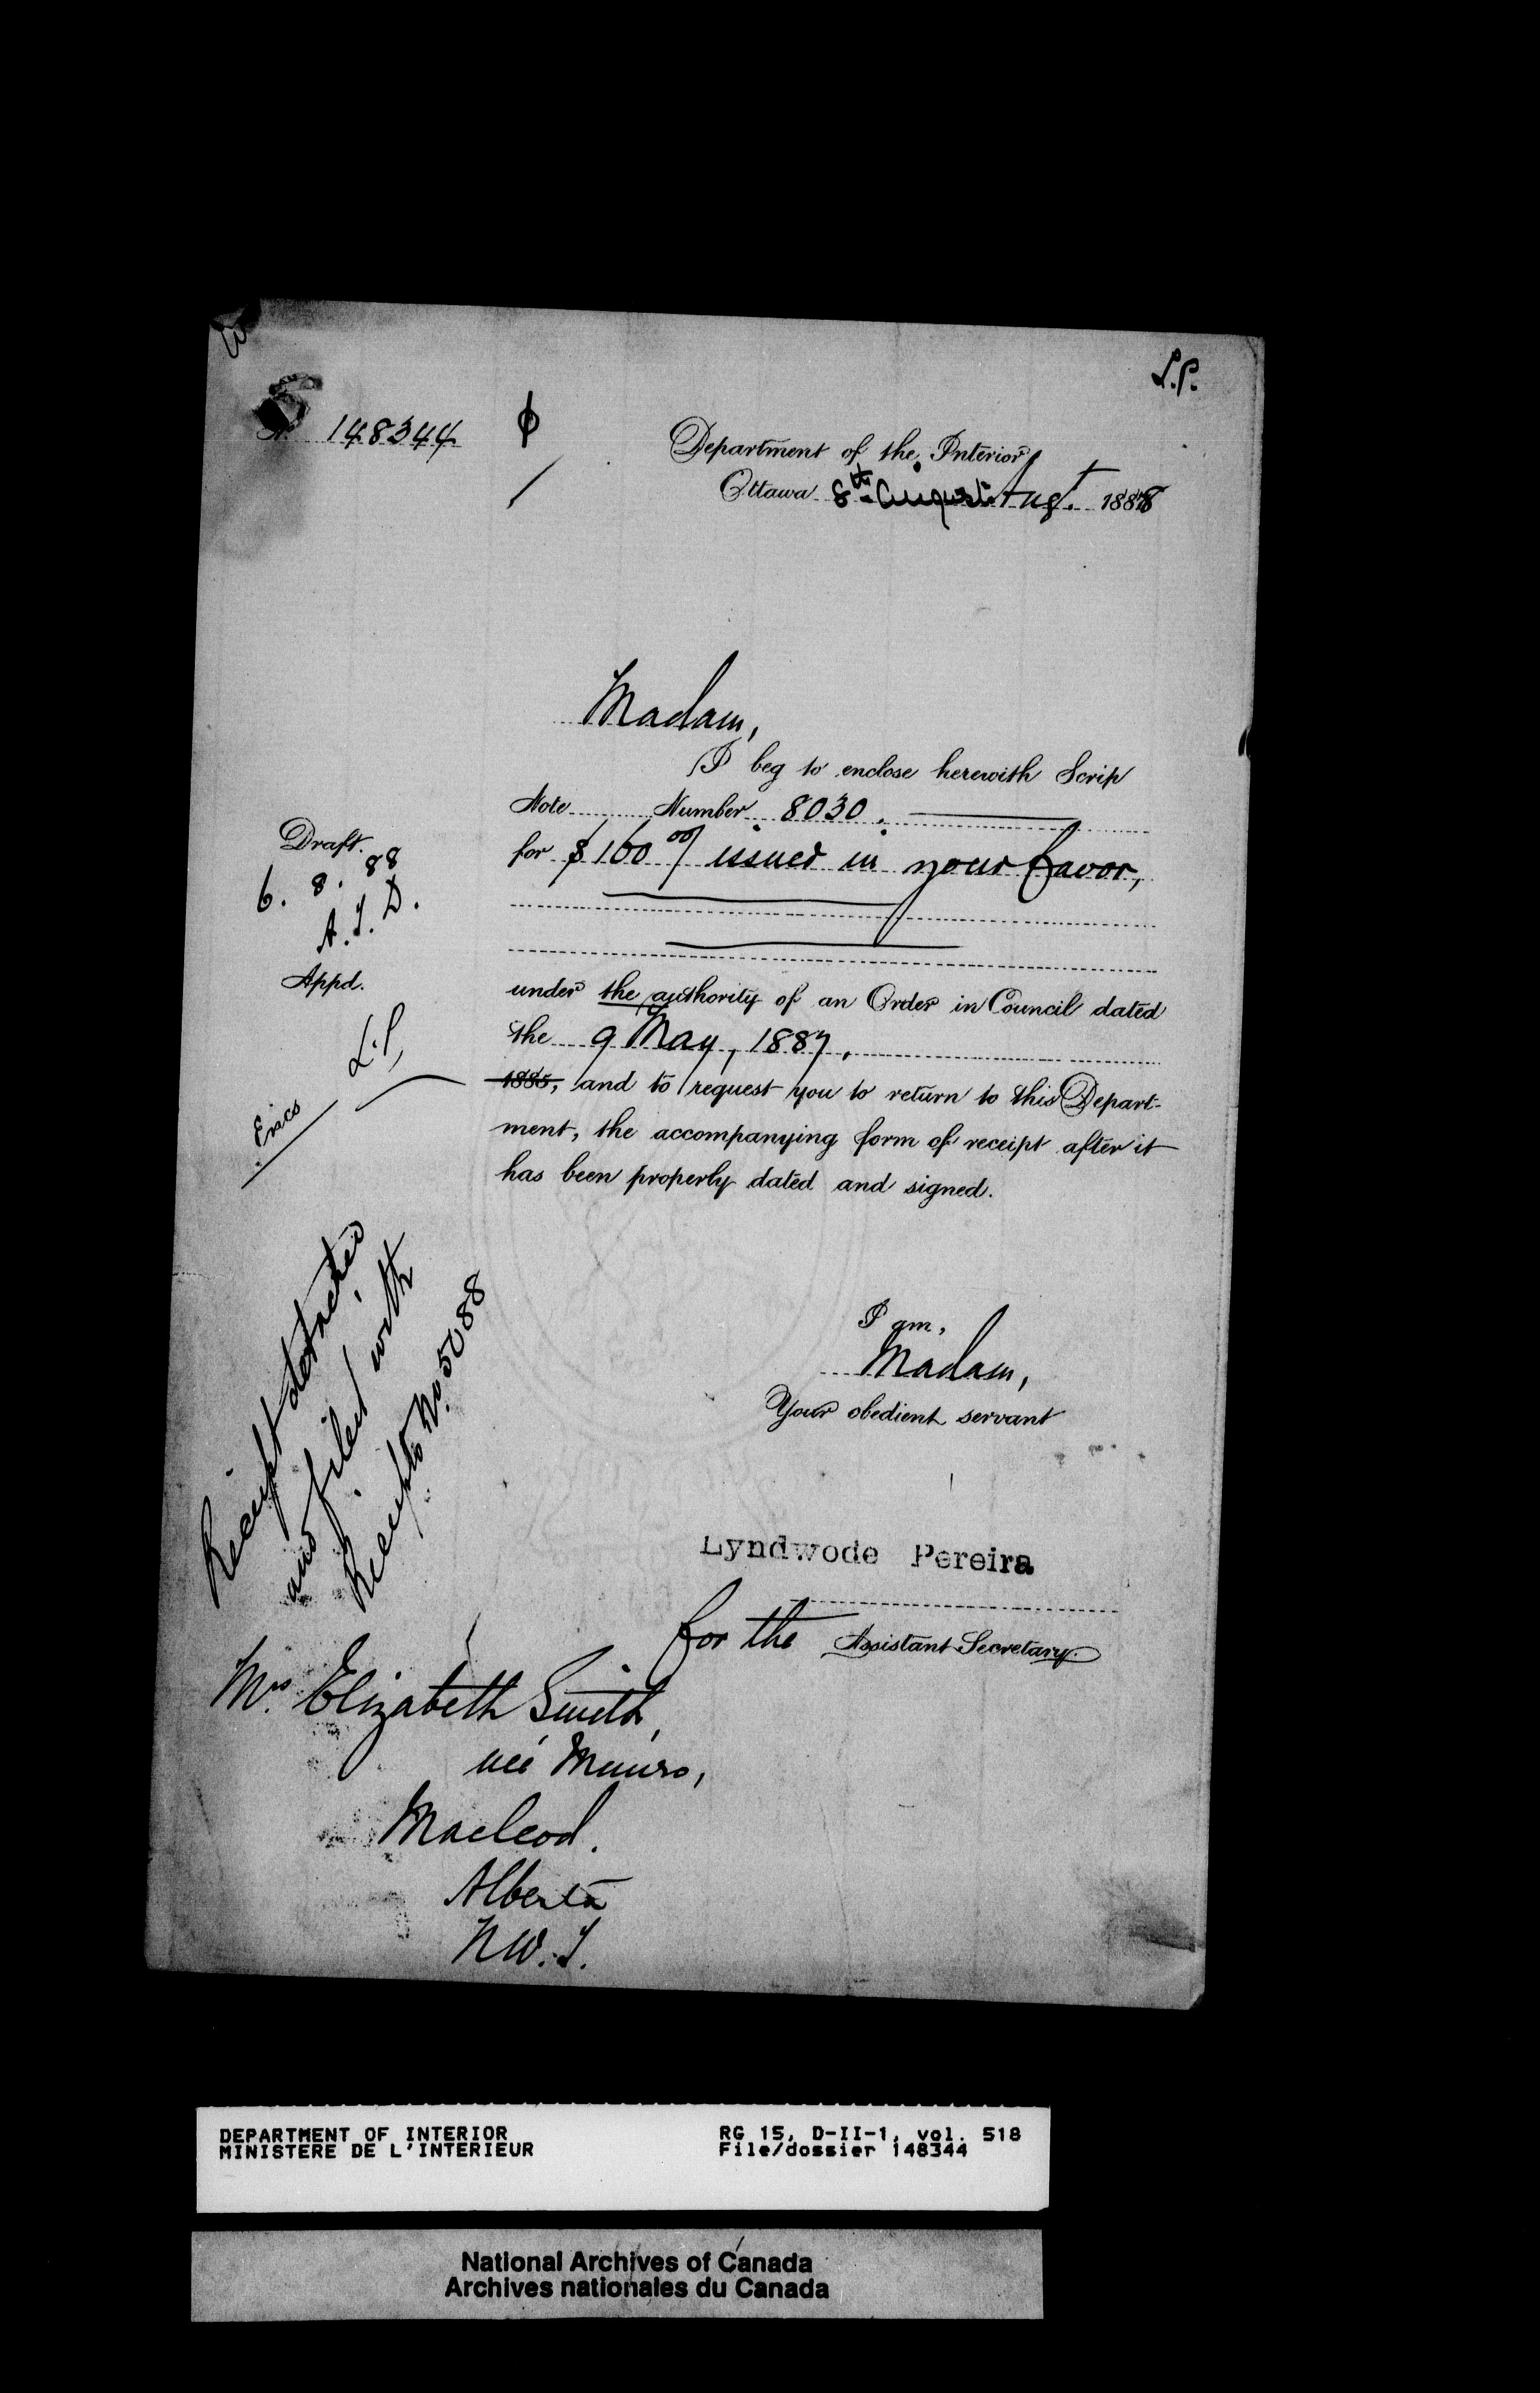 L.P.
No. 148344
Department of the Interior
Ottawa 8th August Augt. 1888
Madam,
I beg to enclose herewith Scrip
Note Number 8030.
for $160 00/ issued in your favor,
Draft.
6. 8. 88
A.J.D.
Appd.
L.P.
under the authority of an Order in Council dated
the 9 May, 1887,
1885, and to request you to return to this Depart-
ment, the accompanying form of receipt after it
has been properly dated and signed.
Encs
Receipt detached
and filed with
Receipts No. 5088
I am,
Madam,
Your obedient servant
Lyndwode Pereira
for the Assistant Secretary.
Mrs. Elizabeth Smith,
neé Munro,
Macleod.
Alberta
N.W.T.
DEPARTMENT OF INTERIOR RG 15, D-II-1, vol. 518
MINISTERE DE L'INTERIEUR File/dossier 148344
National Archives of Canada
Archives nationales du Canada